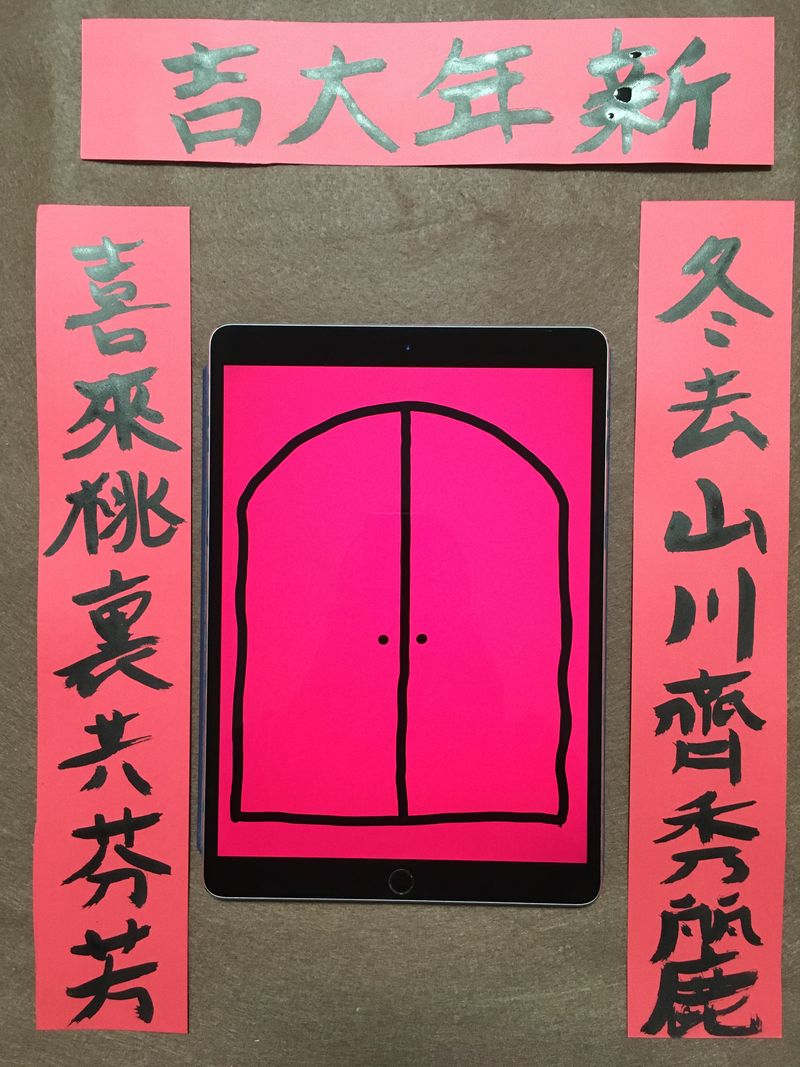 新年大吉
冬去山川齊秀麗
喜來桃裏共芬芳